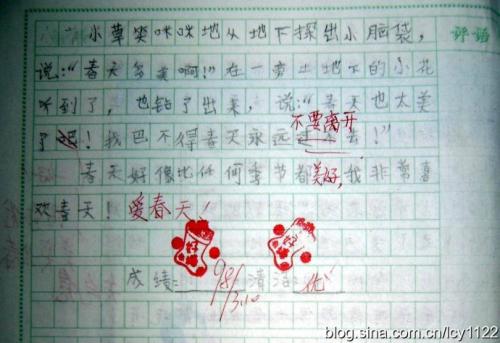 小草笑咪咪地从地下探出小脑袋，
评语
说："春天多美啊！"在一旁土地下的小花
听到了，也钻了出来，说："春天也太美
不要离开
了吧！我巴不得春天永远过不去！"
春天好像比任何季节都美好，我非常喜
欢春天！爱春天！
成绩：98 清洁：优
3.10
blog.sina.com.cn/lcy1122